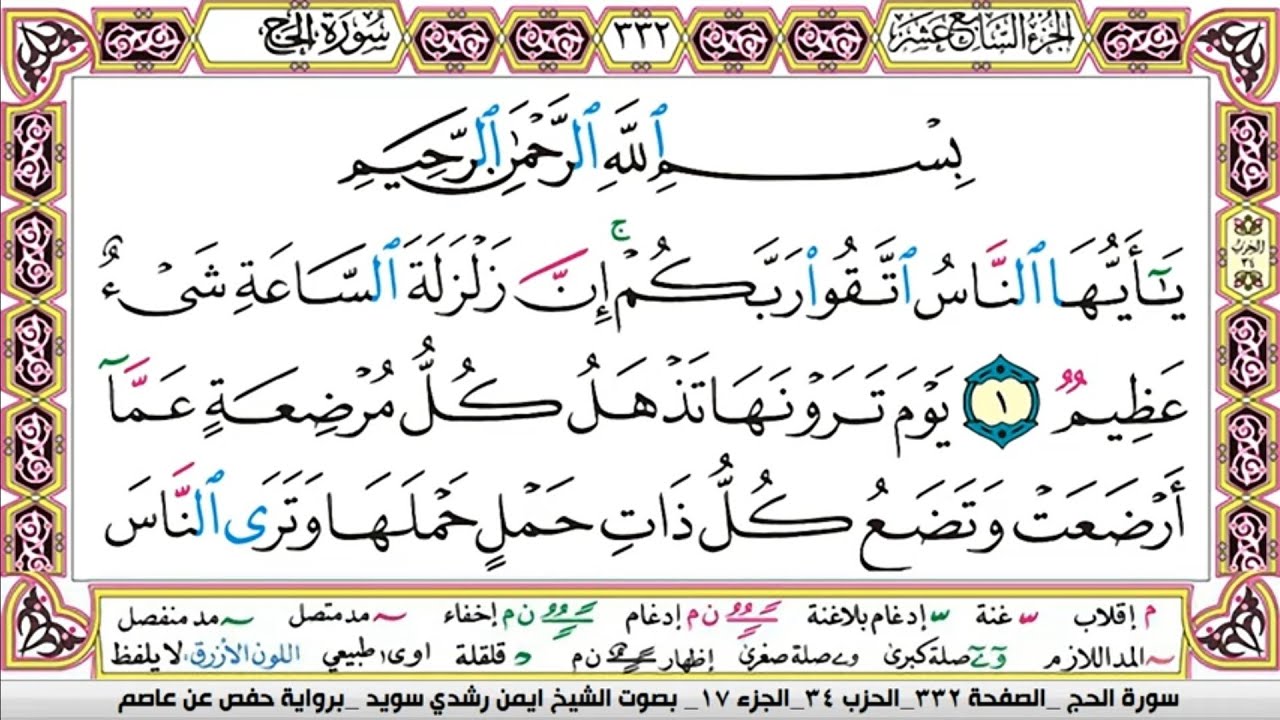 الجزء السابع عشر ٣٣٢ سورة الحج
الحزب ٣٤
بِسْمِ ٱللَّهِ ٱلرَّحْمَٰنِ ٱلرَّحِيمِ
يَٰٓأَيُّهَا ٱلنَّاسُ ٱتَّقُوا۟ رَبَّكُمْ ۚ إِنَّ زَلْزَلَةَ ٱلسَّاعَةِ شَىْءٌ
عَظِيمٌ ١ يَوْمَ تَرَوْنَهَا تَذْهَلُ كُلُّ مُرْضِعَةٍ عَمَّآ
أَرْضَعَتْ وَتَضَعُ كُلُّ ذَاتِ حَمْلٍ حَمْلَهَا وَتَرَى ٱلنَّاسَ
م إقلاب غنة إدغام بلاغنة ن م إدغام ن م إخفاء مد متصل مد منفصل
المد اللازم صلة كبرى و ے صلة صغرى إظهار ن م قلقلة اوى طبيعي اللون الأزرق لا يلفظ
سورة الحج _الصفحة ٣٣٢_الحزب ٣٤_ الجزء ١٧_ بصوت الشيخ ايمن رشدي سويد _برواية حفص عن عاصم